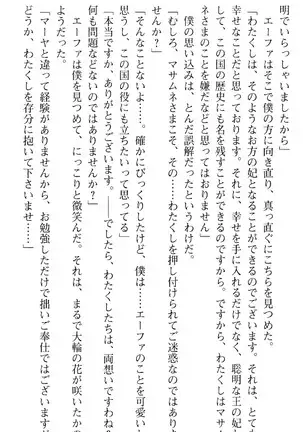 明でいらっしゃいましたから」
　エーファはそこで僕の方に向き直り、真っ直ぐにこちらを見つめた。
「わたくしは、そのようなお方の妃となることができるのでございます。それは、とて
も幸せなことだと思っております。それに、幸せを手に入れるだけでなく、聡明な王の妃と
して、この国の歴史にも名を残すことができるのですから……ですから、わたくしはマサム
ネさまのことを嫌だなどと思ってはおりません」
　僕の思い込みは、とんだ誤解だったというわけだ。
「むしろ、マサムネさまこそ、その……わたくしを押し付けられてご迷惑なのではありま
せんか？」
「そんなことないよ……。確かにびっくりしたけど、僕は……エーファのことを可愛いと
思うし、この国の役にも立ちたいって思ってる」
「本当ですか、ありがとうございます。――でしたら、わたくしたちは、両想いですわね。
何も問題などないのではありませんか？」
　エーファは僕を見つめて、にっこりと微笑んだ。それは、まるで大輪の花が咲いたかの
ようだった。
「マーヤと違って経験がありませんから、お勉強しただけで拙いご奉仕ではございますが
……わたくしを存分に抱いて下さいませ……」